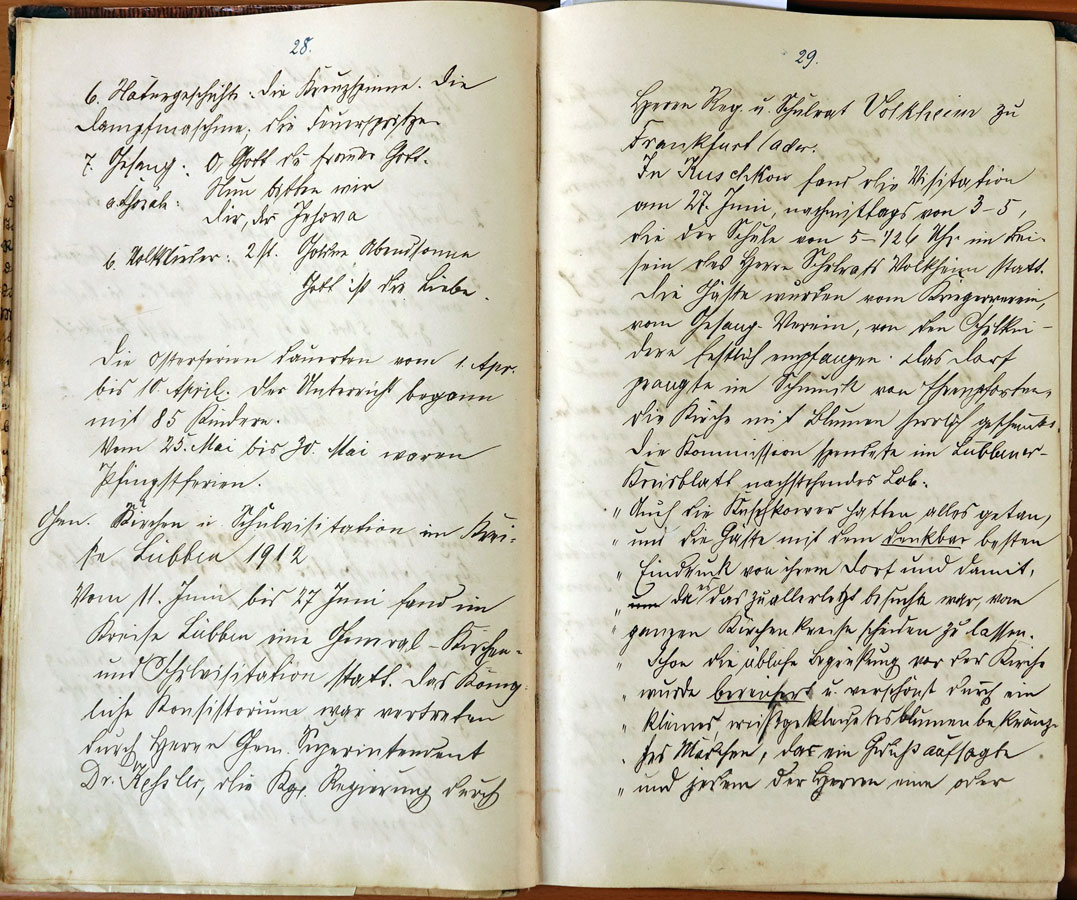 28.
6. Naturgeschichte: Die Kreuzspinne. Die
Dampfmaschine. die Feuerspritze
7. Gesang: O, Gott du fromer Gott.
a. Choräle: Nun bitten wir
Dir, dir Jehova
b. Volkslieder: 2 st. Goldne Abendsonne
Gott ist die Liebe.
Die Osterferien dauerten vom 1. Apr.
bis 10. April. Der Unterricht begann
mit 85 Kindern.
Vom 25. Mai bis 30. Mai waren
Pfingstferien.
Gen. Kirchen u. Schulvisitation im Krei-
se Lübben 1912
Vom 11. Juni bis 27 Juni fand im
Kreise Lübben eine General-Kirchen-
und Schulvisitation statt. Das König-
liche Konsistorium war vertreten
durch Herrn Gen. Superintendent
Dr. Keßler, die Kgl. Regierung durch
29.
Herrn Reg u. Schulrat Volkheim zu
Frankfurt/Oder.
In Kuschkow fand die Visitation
am 27. Juni, nachmittags von 3-5,
die der Schule von 5-1/2 6 Uhr im Bei-
sein des Herrn Schulrats Volkheim statt.
Die Gäste wurden vom Kriegerverein,
vom Gesang-Verein, von den Schulkin-
dern festlich empfangen. Das Dorf
prangte im Schmuck von Ehrenpforten,
die Kirche mit Blumen herrlich geschmückt.
Die Kommission spendete im Lübbener-
Kreisblatt nachstehendes Lob:
" Auch die Kuschkower hatten alles getan,
" um die Gäste mit dem denkbar besten
" Eindruck von ihrem Dorf und damit,
" da es das zuallerletzt besuchte war, vom
" ganzen Kirchenkreise scheiden zu lassen.
" Schon die übliche Begrüßung vor der Kirche
" wurde bereichert u. verschönt durch ein
" kleines, weißgekleidetes blumenbekränz-
" tes Mädchen, das ein Gruß aufsagte
" und jedem der Herren eine oder